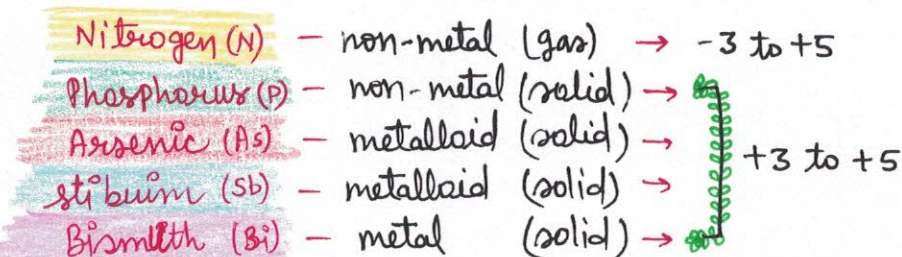 Nitrogen (N) — non-metal (gas) → -3 to +5
Phosphorus (P) — non-metal (solid) →
Arsenic (As) — metalloid (solid) →
+3 to +5
stibuim (Sb) — metalloid (solid) →
Bismuth (Bi) — metal (solid) →